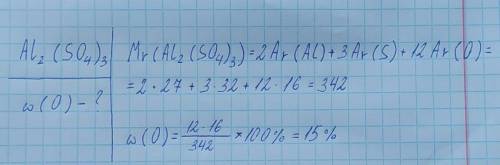 Al₂(SO₄)₃
w(O) - ?
Mr(Al₂(SO₄)₃) = 2Ar(Al) + 3Ar(S) + 12Ar(O) =
= 2 · 27 + 3 · 32 + 12 · 16 = 342
w(O) = 12 · 16 / 342 * 100% = 15%